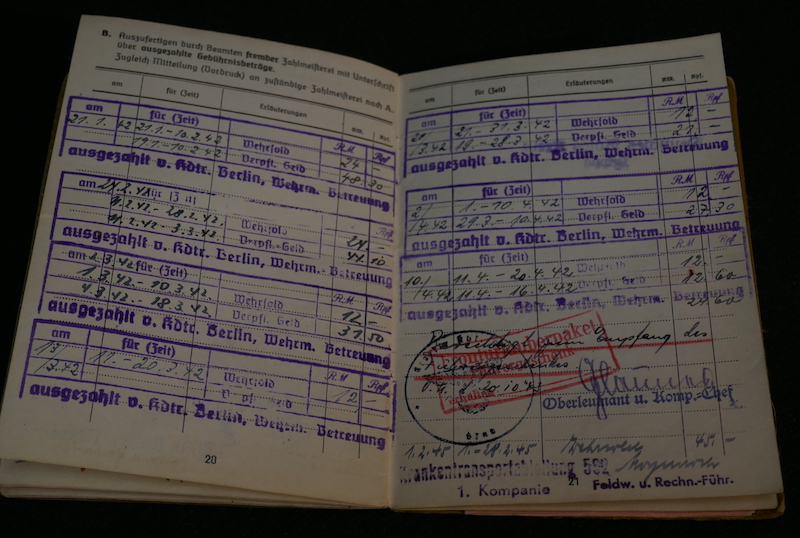 B. Auszufertigen durch Beamten fremder Zahlmeisterei mit Unterschrift
über ausgezahlte Gebührnisbeträge.
Zugleich Mitteilung (Vordruck) an zuständige Zahlmeisterei nach A.
am für (Zeit) Erläuterungen RM. Rpf.
am für (Zeit) RM Rpf
21.1.42 21.1.-10.2.42 Wehrsold 24 -
19.1.-10.2.42 Verpfl. Geld 48.30
ausgezahlt v. Kdtr. Berlin, Wehrm. Betreuung
am für (Zeit)
11.2.42.-28.2.42. Wehrsold 24.-
11.2.42.-3.3.42. Verpfl.-Geld 44.10
ausgezahlt v. Kdtr. Berlin, Wehrm. Betreuung
am 2.3.42 für (Zeit) RM Rpf
1.3.42-10.3.42. Wehrsold 12.-
4.3.42-18.3.42 Verpfl. Geld 31.50
ausgezahlt v. Kdtr. Berlin, Wehrm. Betreuung
am für (Zeit) RM Rpf.
13. 11.-20.3.42 Wehrsold 12 -
3.42 Verpfl. Geld
ausgezahlt v. Kdtr. Berlin, Wehrm. Betreuung
20
am für (Zeit) Erläuterungen RM. Rpf.
am für (Zeit) RM Rpf
21.-31.3.42 Wehrsold 12 -
19.-28.3.42 Verpfl. Geld 21.
ausgezahlt v. Kdtr. Berlin, Wehrm. Betreuung
am für (Zeit) RM Rpf
2/ 1.-10.4.42 Wehrsold 12 -
4.42 29.3.-10.4.42 Verpfl. Geld 27.30
ausgezahlt v. Kdtr. Berlin, Wehrm. Betreuung
am für (Zeit) RM Rpf
10./ 11.4.-20.4.42 Wehrsold 12.-
4.42 11.4.-16.4.42 Verpfl. Geld 12.60
ausgezahlt v. Kdtr. Berlin, Wehrm. Betreuung
Empfang des
Oberleutnant u. Komp.-Chef
1.2.45 1.-28.2.45 Wehrsold 45 -
Krankentransportabteilung 592
1. Kompanie 21 Feldw. u. Rechn.-Führ.